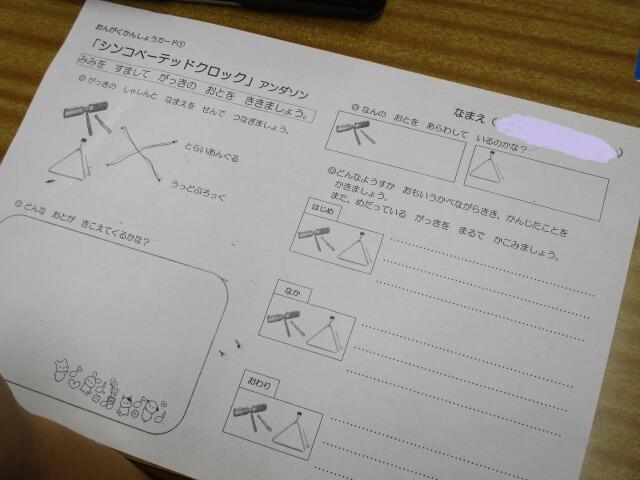 おんがくかんしょうカード①
「シンコペーテッドクロック」アンダソン
みみを　すまして　がっきの　おとを　ききましょう。
◎がっきの　しゃしんと　なまえを　せんで　つなぎましょう。
とらいあんぐる
うっどぶろっく
◎どんな　おとが　きこえてくるかな？
なまえ（　　　）
◎なんの　おとを　あらわして　いるのかな？
◎どんなようすか　おもいうかべながらきき、かんじたことを
かきましょう。
また、めだっている　がっきを　まるで　かこみましょう。
はじめ
なか
おわり